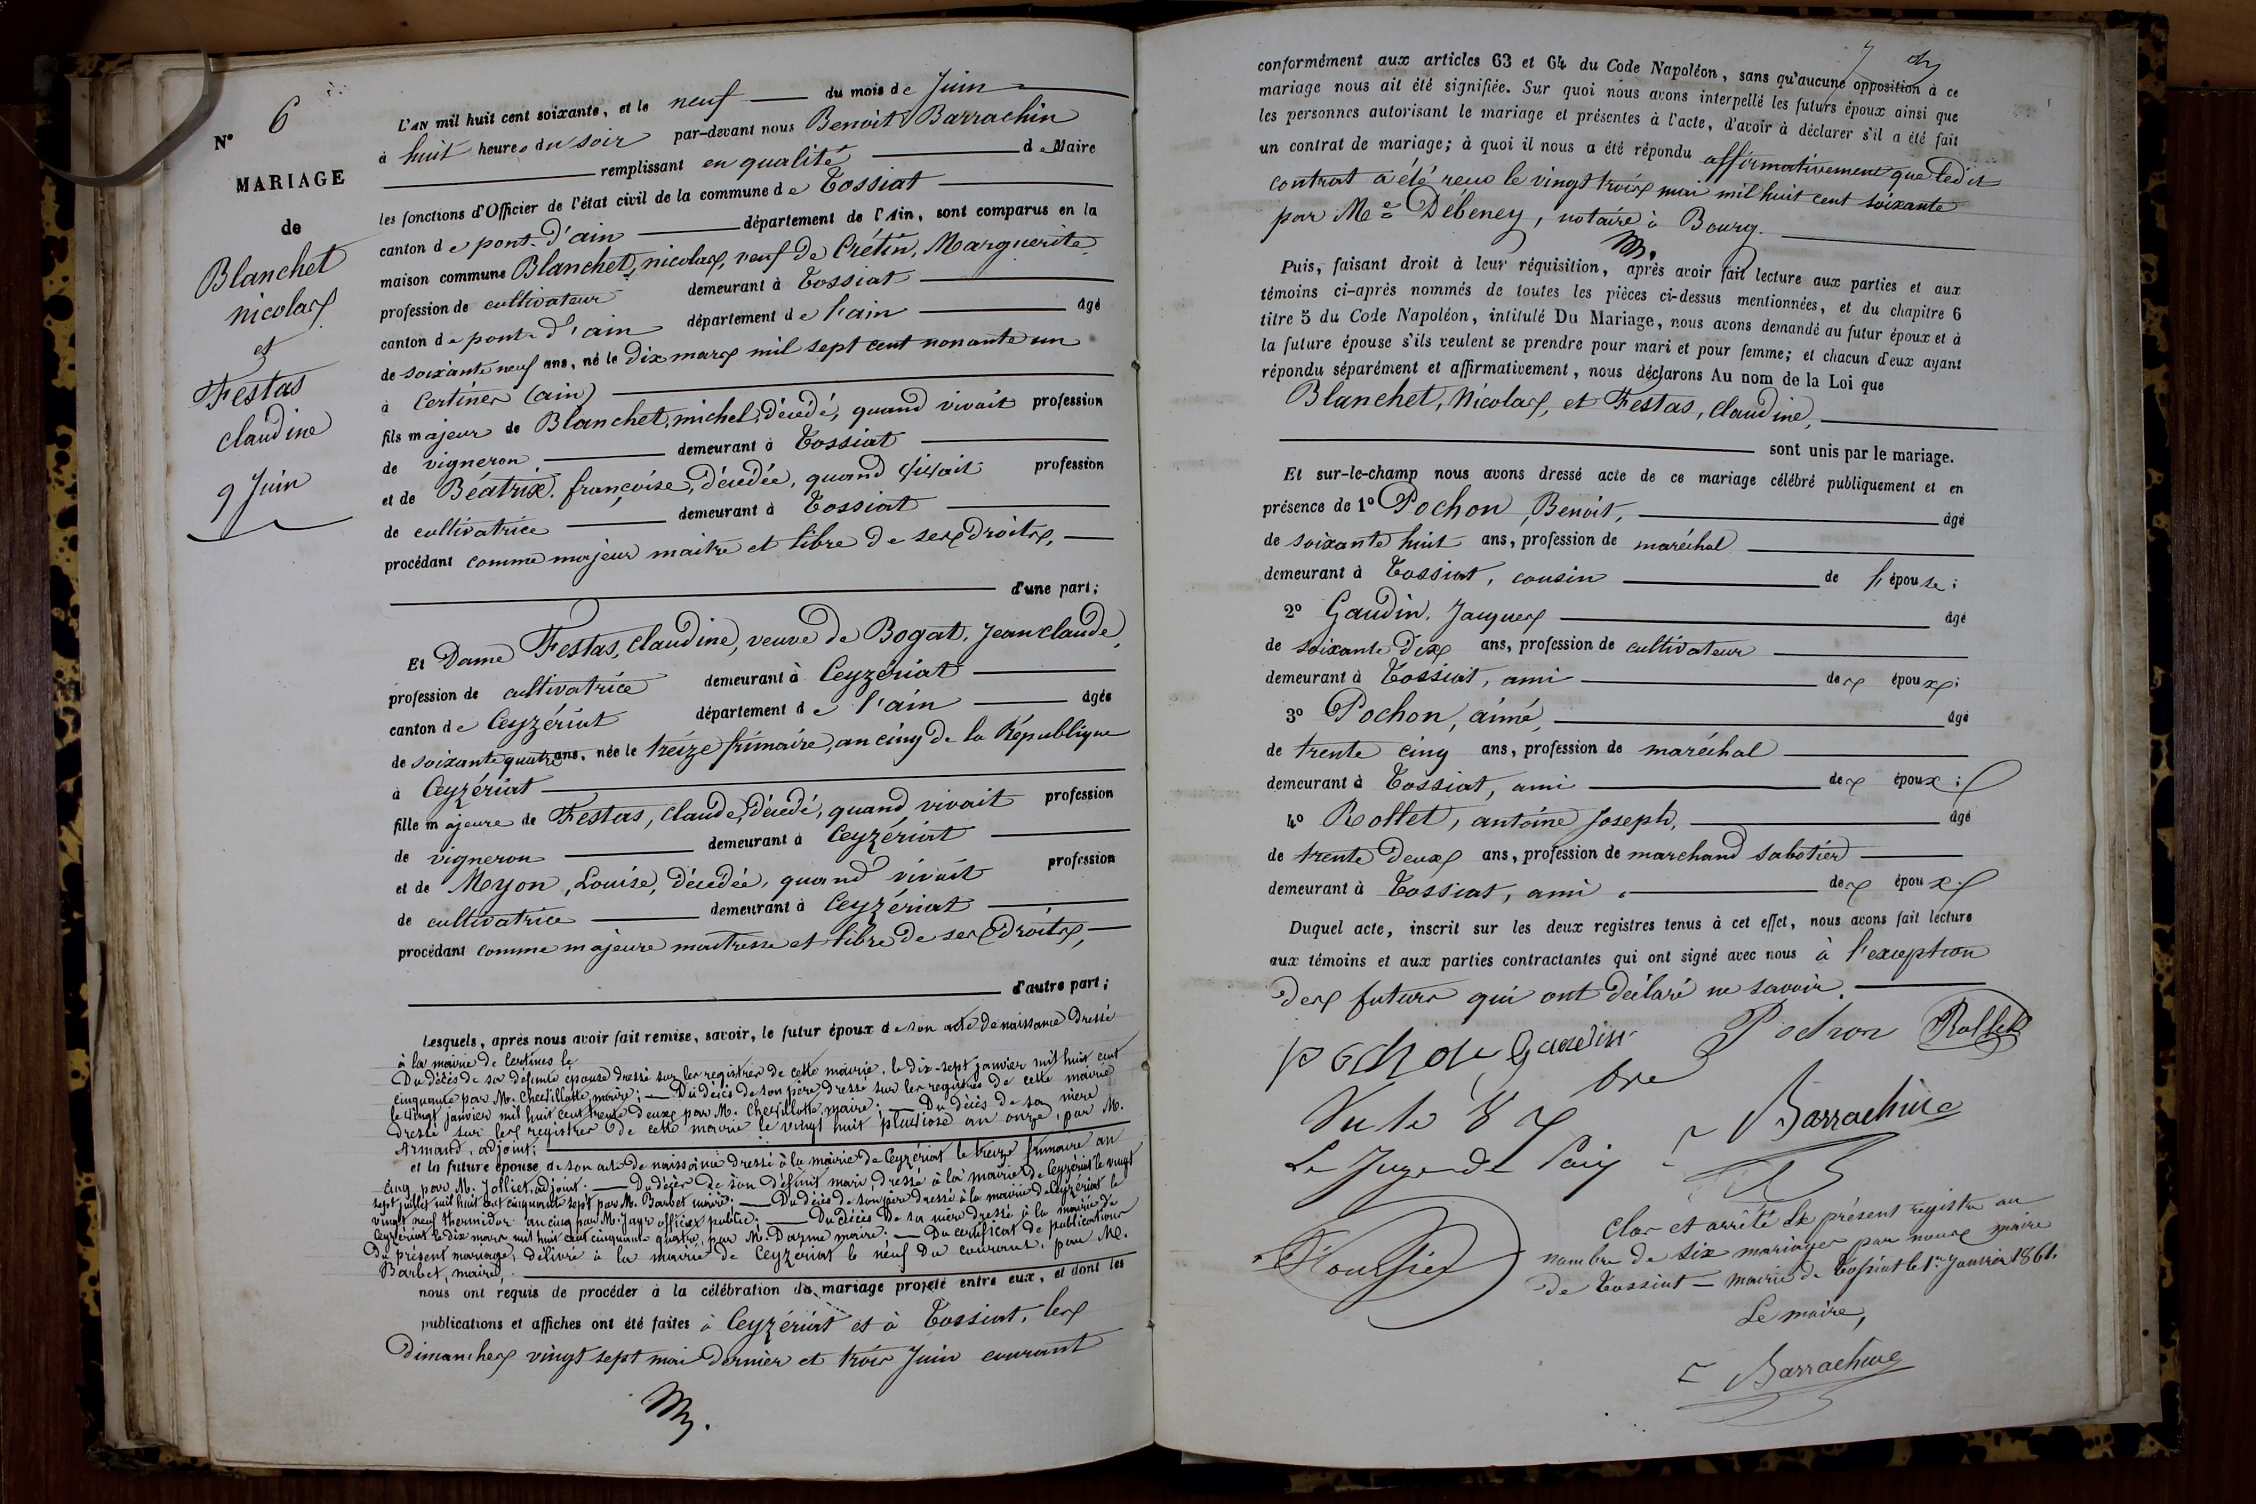 N° 6
MARIAGE
de
Blanchet
nicolas
et
Festas
claudine
9 Juin
L'AN mil huit cent soixante, et le neuf du mois de Juin
à huit heures du soir par-devant nous Benoit Barrachin
remplissant en qualité de Maire
les fonctions d'Officier de l'état civil de la commune de Tossiat
canton de pont-d'ain département de l'Ain, sont comparus en la
maison commune Blanchet, nicolas, veuf de Crétin, Marguerite
profession de cultivateur demeurant à Tossiat
canton de pont-d'ain département de l'ain âgé
de soixante neuf ans, né le dix mars mil sept cent nonante un
à Certines (ain)
fils majeur de Blanchet, michel, décédé, quand vivait profession
de vigneron demeurant à Tossiat
et de Béatrix, françoise, décédée, quand vivait profession
de cultivatrice demeurant à Tossiat
procédant comme majeur maitre et libre de ses droits,
d'une part;
Et Dame Festas, claudine, veuve de Bogat, Jean claude,
profession de cultivatrice demeurant à Ceyzériat
canton de Ceyzériat département de l'ain âgée
de soixante quatre ans, née le treize frimaire, an cinq de la République
à Ceyzériat
fille majeure de Festas, claude, décédé, quand vivait profession
de vigneron demeurant à Ceyzériat
et de Meyon, Louise, décédée, quand vivait profession
de cultivatrice demeurant à Ceyzériat
procédant comme majeure maitresse et libre de ses droits,
d'autre part;
Lesquels, après nous avoir fait remise, savoir, le futur époux de son acte de naissance dressé
à la mairie de Certines le
Du décès de sa défunte épouse dressé sur les registres de cette mairie, le dix-sept janvier mil huit cent
cinquante par M. Chevillotte, maire; Du décès de son père dressé sur les registres de cette mairie
le vingt janvier mil huit cent trente deux par M. Chevillotte, maire; Du décès de sa mère
dressé sur les registres de cette mairie le vingt huit pluviose an onze, par M.
Armand, adjoint;
et la future épouse de son acte de naissance dressé à la mairie de Ceyzériat le treize frimaire an
cinq par M. Jolliet, adjoint. Du décès de son défunt mari, dressé à la mairie de Ceyzériat le vingt
sept juillet mil huit cent cinquante sept par M. Barbet maire; Du décès de son père dressé à la mairie de Ceyzériat le
vingt neuf thermidor an cinq par M. Jayr officier public; Du décès de sa mère dressé à la mairie de
Ceyzériat le dix mars mil huit cent cinquante quatre, par M. maire. Du certificat de publications
Du présent mariage, délivré à la mairie de Ceyzériat le neuf du courant, par M.
Barbet, maire,
nous ont requis de procéder à la célébration du mariage projeté entre eux, et dont les
publications et affiches ont été faites à Ceyzériat et à Tossiat, les
dimanches vingt sept mai dernier et trois Juin courant
7
conformément aux articles 63 et 64 du Code Napoléon, sans qu'aucune opposition à ce
mariage nous ait été signifiée. Sur quoi nous avons interpellé les futurs époux ainsi que
les personnes autorisant le mariage et présentes à l'acte, d'avoir à déclarer s'il a été fait
un contrat de mariage; à quoi il nous a été répondu affirmativement que ledit
contrat a été reçu le vingt trois mai mil huit cent soixante
par Me Debeney, notaire à Bourg.
Puis, faisant droit à leur réquisition, après avoir fait lecture aux parties et aux
témoins ci-après nommés de toutes les pièces ci-dessus mentionnées, et du chapitre 6
titre 5 du Code Napoléon, intitulé Du Mariage, nous avons demandé au futur époux et à
la future épouse s'ils veulent se prendre pour mari et pour femme; et chacun d'eux ayant
répondu séparément et affirmativement, nous déclarons Au nom de la Loi que
Blanchet, Nicolas, et Festas, claudine,
sont unis par le mariage.
Et sur-le-champ nous avons dressé acte de ce mariage célébré publiquement et en
présence de 1° Pochon, Benoit, âgé
de soixante huit ans, profession de maréchal
demeurant à Tossiat, cousin de l'épouse;
2° Gaudin, Jacques âgé
de soixante dix ans, profession de cultivateur
demeurant à Tossiat, ami des époux;
3° Pochon, aimé, âgé
de trente cinq ans, profession de maréchal
demeurant à Tossiat, ami des époux;
4° Rollet, antoine Joseph, âgé
de trente deux ans, profession de marchand sabotier
demeurant à Tossiat, ami des époux.
Duquel acte, inscrit sur les deux registres tenus à cet effet, nous avons fait lecture
aux témoins et aux parties contractantes qui ont signé avec nous à l'exception
des futurs qui ont déclaré ne savoir.
pochon Gaudin Pochon Rollet
Vu le
Le Juge de Paix
Barrachin
Clos et arrêté le présent registre au
nombre de six mariages par nous maire
de Tossiat - mairie de Tossiat le 1er Janvier 1861.
Le maire,
Barrachin